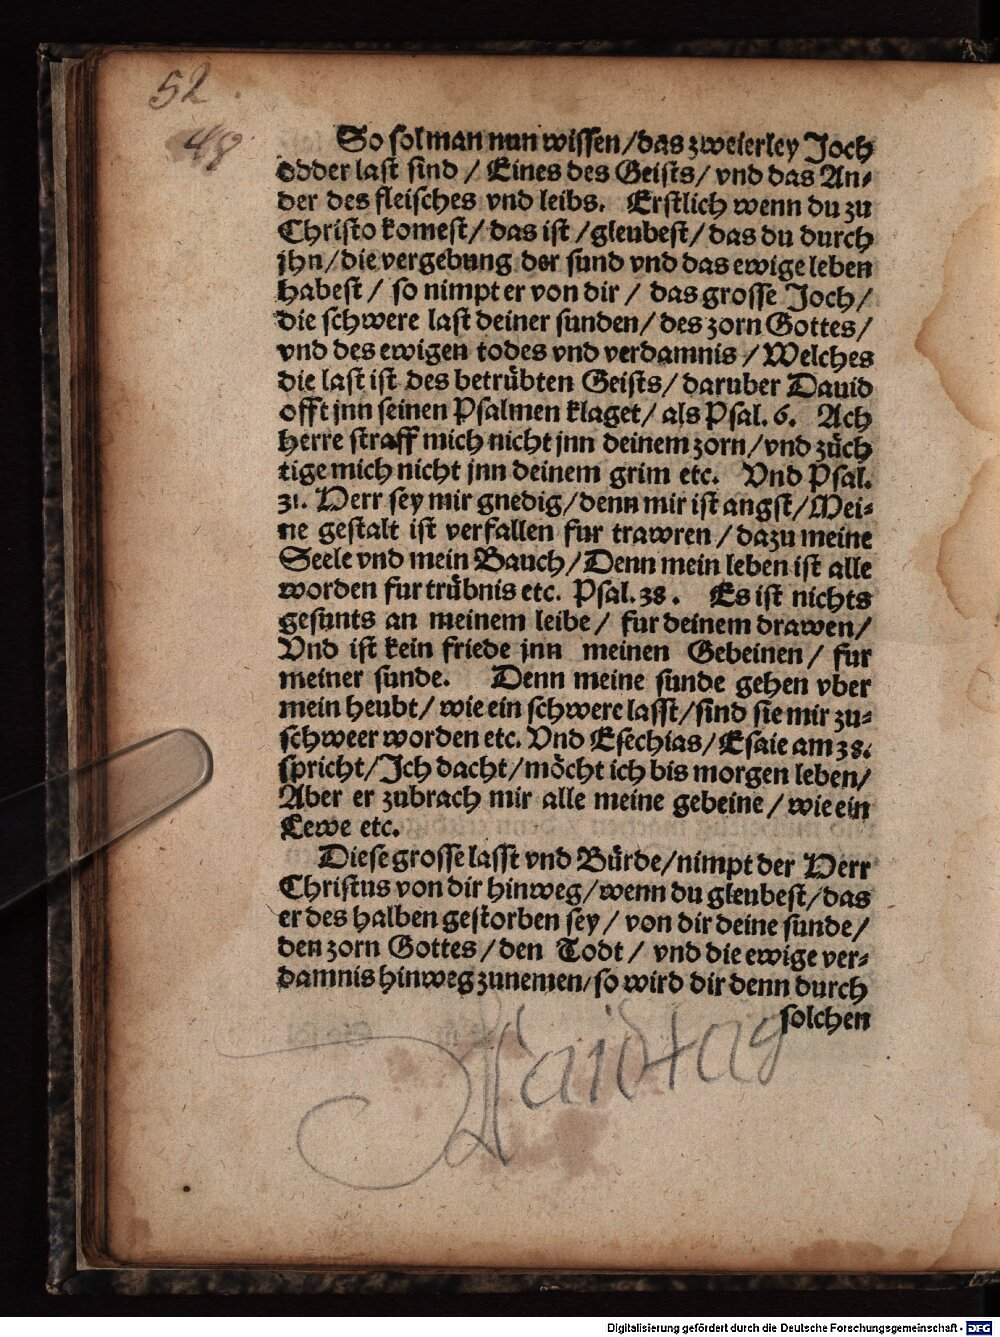 52
48
So sol man nun wissen/das zweierley Joch
odder last sind / Eines des Geists/ vnd das An-
der des fleisches vnd leibs. Erstlich wenn du zu
Christo komest/ das ist /gleubest/ das du durch
jhn/die vergebung der sund vnd das ewige leben
habest / so nimpt er von dir / das grosse Joch/
die schwere last deiner sunden/ des zorn Gottes/
vnd des ewigen todes vnd verdamnis / Welches
die last ist des betrübten Geists/ daruber Dauid
offt jnn seinen Psalmen klaget/ als Psal. 6. Ach
herre straff mich nicht jnn deinem zorn/vnd züch
tige mich nicht jnn deinem grim etc. Vnd Psal.
31. Herr sey mir gnedig/denn mir ist angst/Mei-
ne gestalt ist verfallen fur trawren / dazu meine
Seele vnd mein Bauch/Denn mein leben ist alle
worden fur trübnis etc. Psal. 38. Es ist nichts
gesunts an meinem leibe / fur deinem drawen/
Vnd ist kein friede jnn meinen Gebeinen / fur
meiner sunde. Denn meine sunde gehen vber
mein heubt/ wie ein schwere lasst/sind sie mir zu-
schweer worden etc. Vnd Esechias/ Esaie am 38.
spricht/Ich dacht/möcht ich bis morgen leben/
Aber er zubrach mir alle meine gebeine / wie ein
Lewe etc.
Diese grosse lasst vnd Bürde/nimpt der Herr
Christus von dir hinweg/wenn du gleubest/das
er des halben gestorben sey / von dir deine sunde/
den zorn Gottes /den Todt / vnd die ewige ver-
damnis hinweg zunemen/so wird dir denn durch
solchen
Digitalisierung gefördert durch die Deutsche Forschungsgemeinschaft - DFG